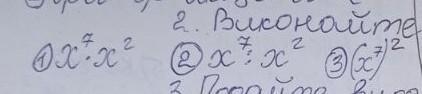 2. Виконайте
① x⁷ · x² ② x⁷ : x² ③ (x⁷)²